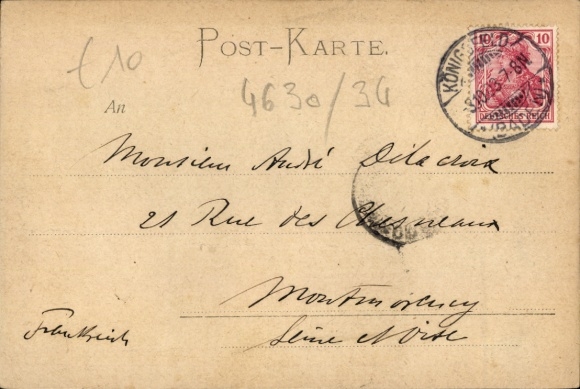 £10
POST-KARTE.
4630/34
An
10 10
DEUTSCHES REICH
Monsieur André Délacroix
21 Rue des Chesneaux
Montmorency
Seine et Oise
Frankreich